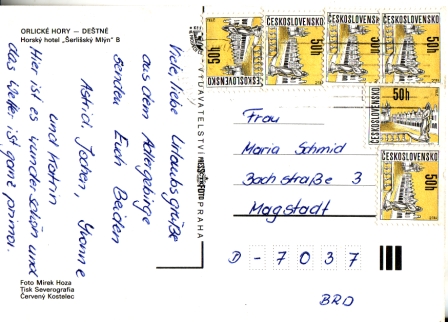 ORLICKÉ HORY — DEŠTNÉ
Horský hotel „Šerlišský Mlýn" B
Viele, liebe Urlaubsgrüße
aus dem Adlergebirge
senden Euch Beiden
Astrid, Jochen, Yvonne
und Katrin
Hier ist es wunderschön und
das Wetter ist ganz prima.
Foto Mirek Hoza
Tisk Severografia
Červený Kostelec
VYDAVATELSTVÍ
PRAHA
ČESKOSLOVENSKO
50h
ČESKOSLOVENSKO
50h
ČESKOSLOVENSKO
50h
ČESKOSLOVENSKO
50h
ČESKOSLOVENSKO
50h
ČESKOSLOVENSKO
50h
Frau
Maria Schmid
Bachstraße 3
Magstadt
D - 7 0 3 7
BRD